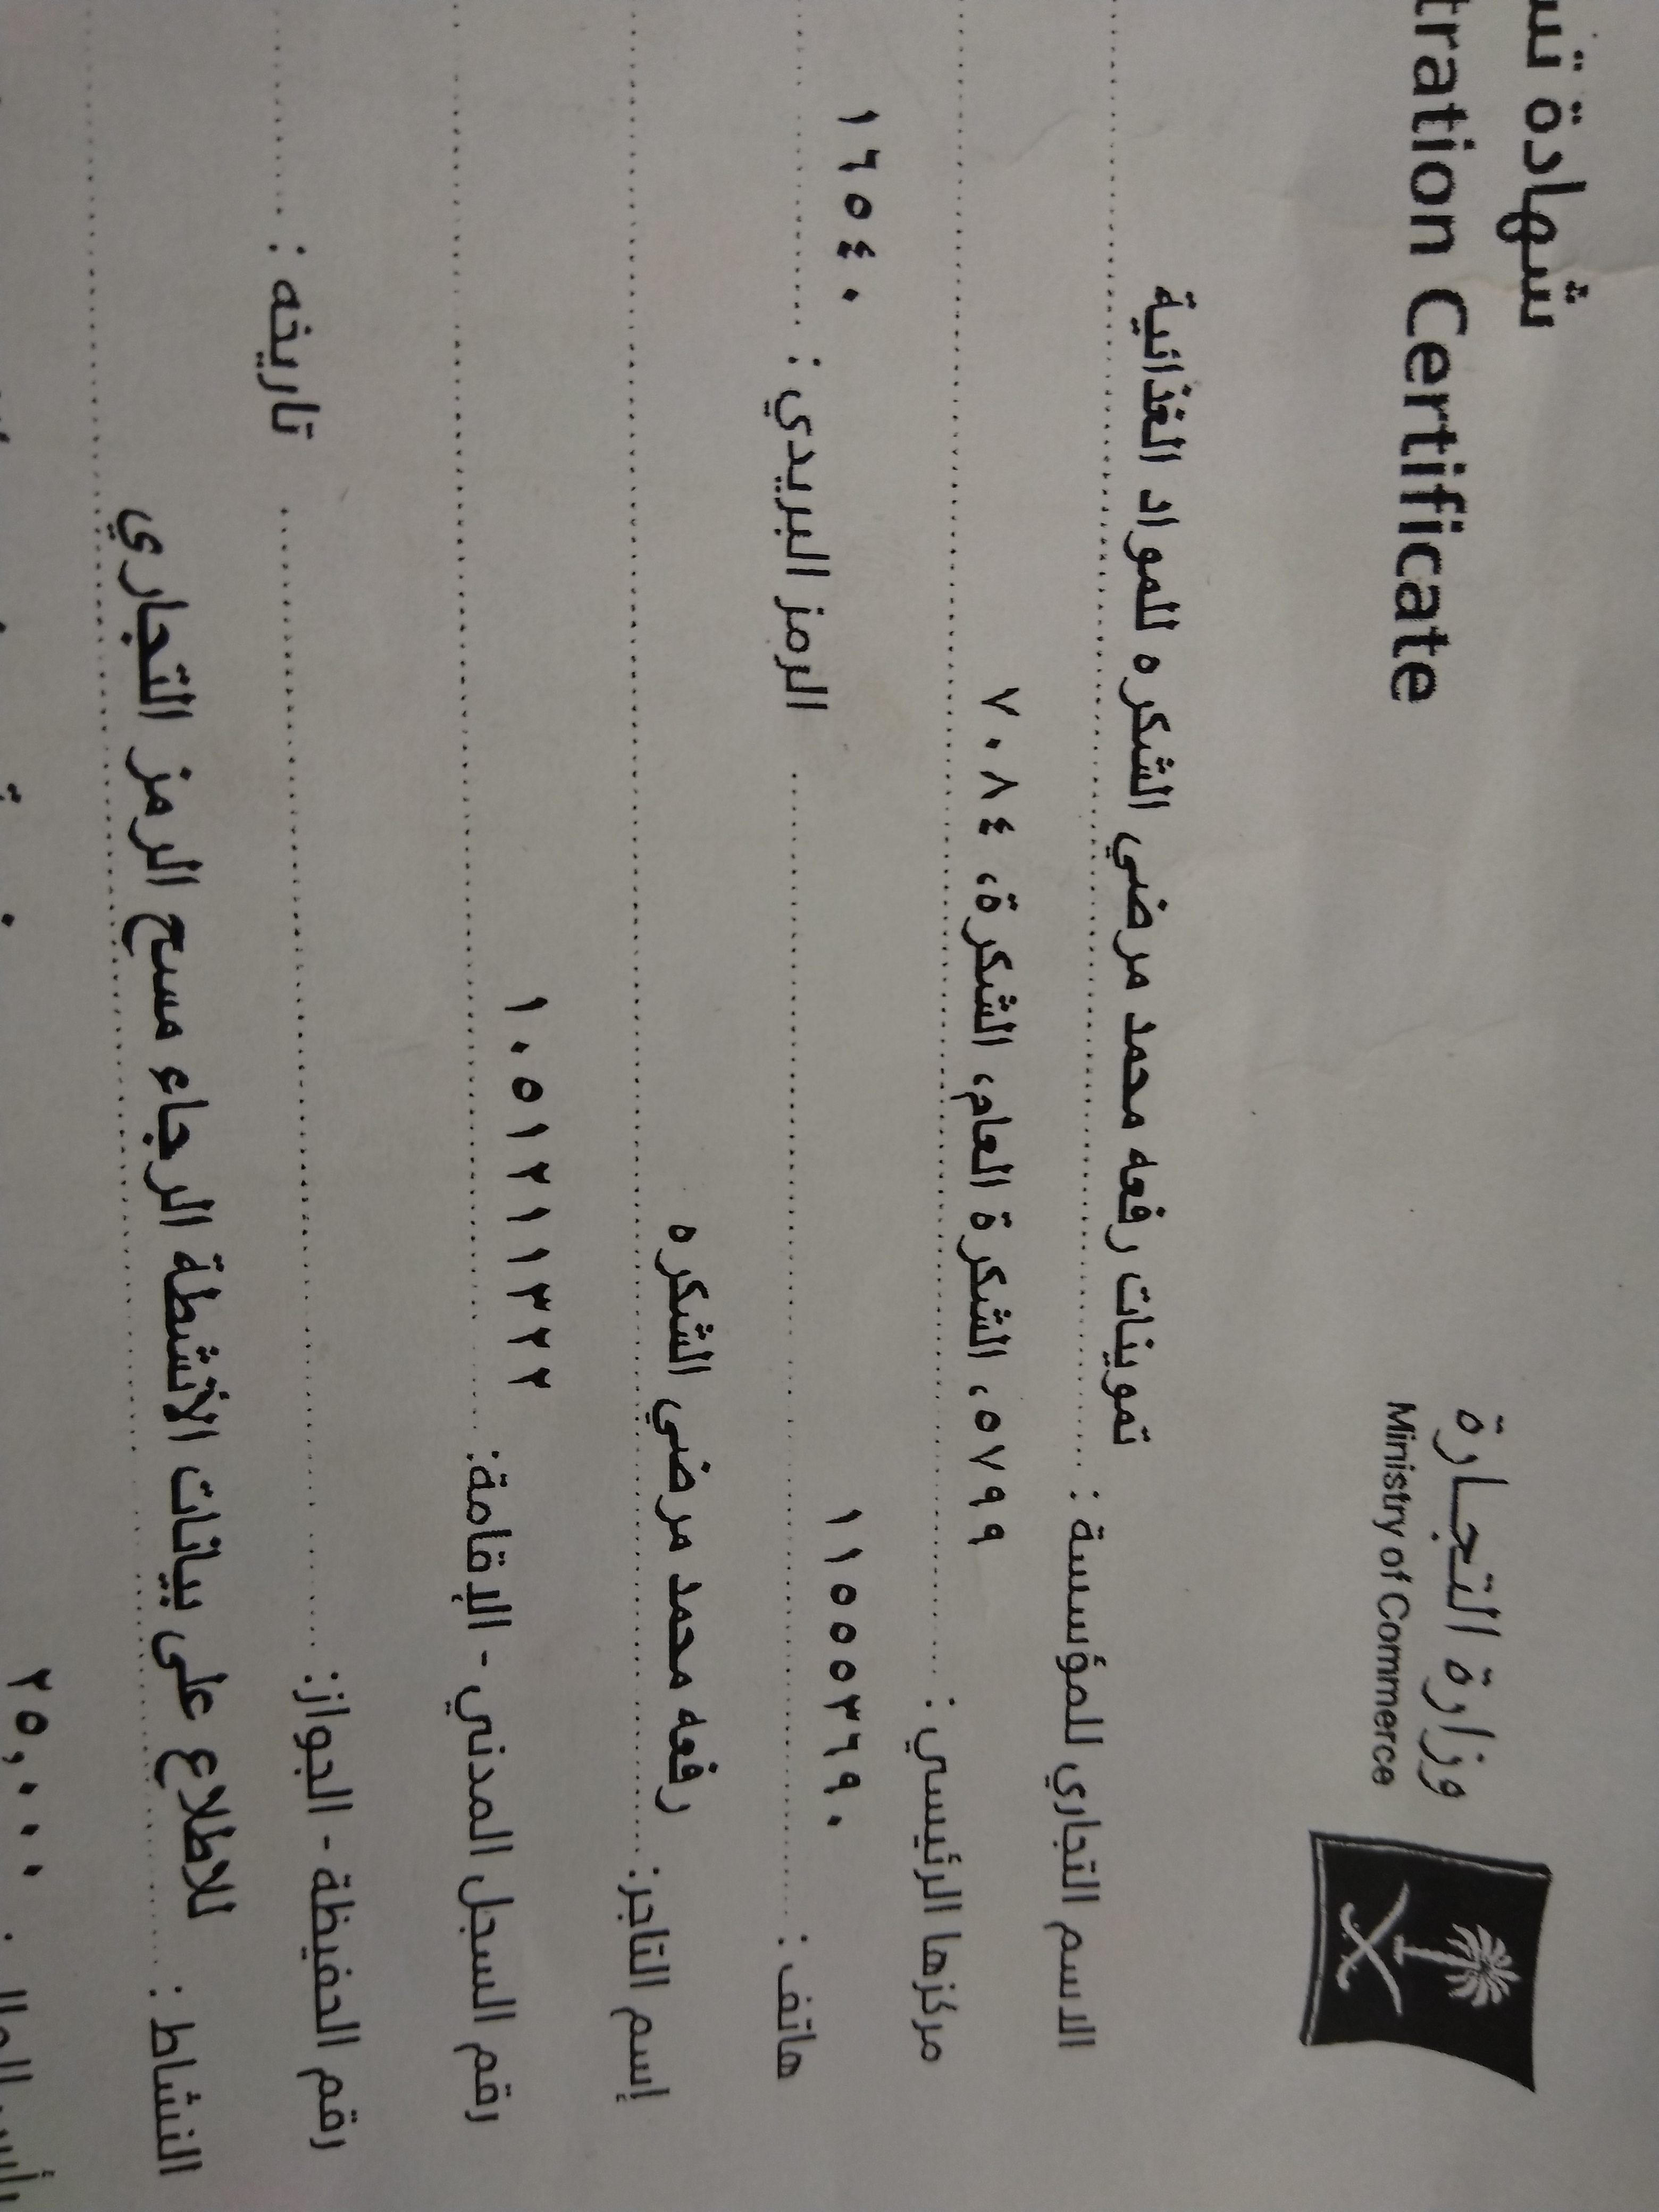 وزارة التجارة
Ministry of Commerce
شهادة
Certificate
الاسم التجاري للمؤسسة : تموينات رفعه محمد مرضي الشكره للمواد الغذائية
مركزها الرئيسي : ٥٧٩٩، الشكرة العام، الشكرة، ٧٠٨٤
هاتف : ١١٥٥٥٣٦٩٠ الرمز البريدي : ١٦٥٤٠
إسم التاجر: رفعه محمد مرضي الشكره
رقم السجل المدني - الإقامة: ١٠٥١٢١١٣٢٢
رقم الحفيظة - الجواز: تاريخه :
النشاط : للاطلاع على بيانات الأنشطة الرجاء مسح الرمز التجاري
٢٥,٠٠٠